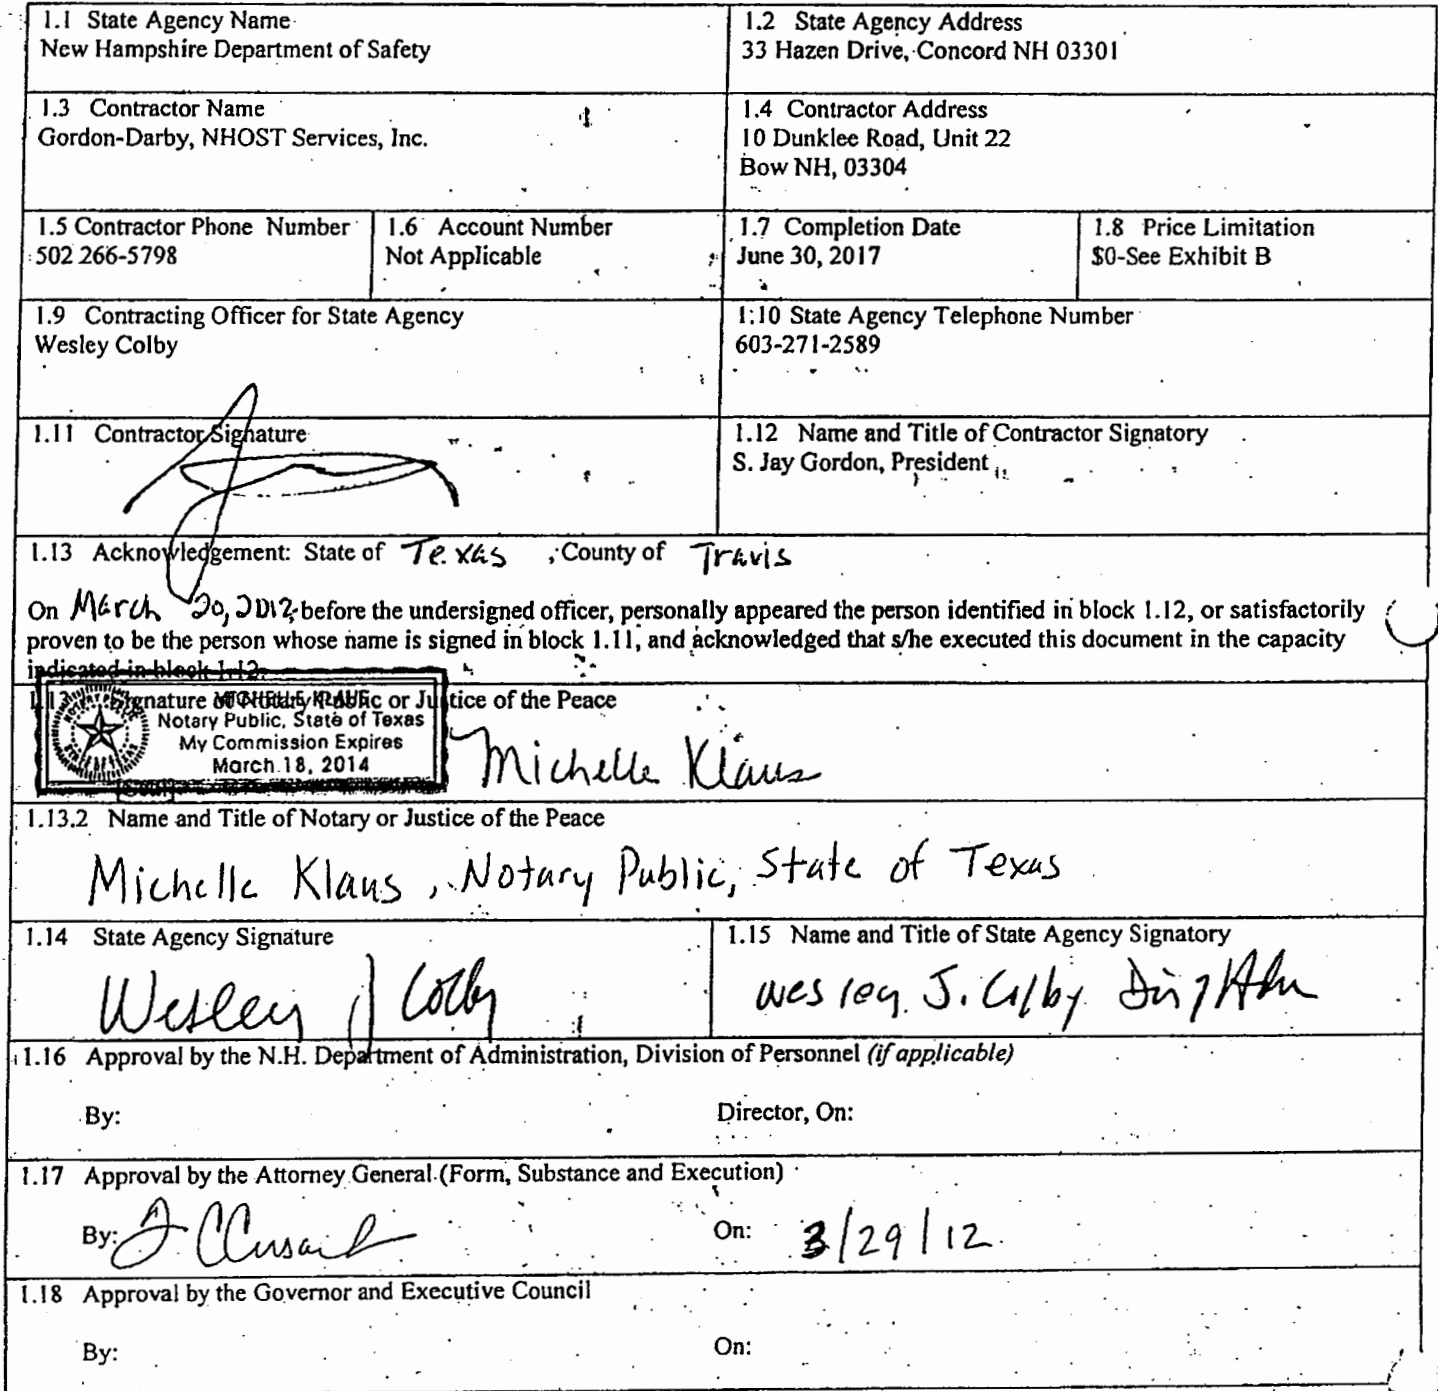 1.1 State Agency Name
New Hampshire Department of Safety
1.2 State Agency Address
33 Hazen Drive, Concord NH 03301
1.3 Contractor Name
Gordon-Darby, NHOST Services, Inc.
1.4 Contractor Address
10 Dunklee Road, Unit 22
Bow NH, 03304
1.5 Contractor Phone Number
502 266-5798
1.6 Account Number
Not Applicable
1.7 Completion Date
June 30, 2017
1.8 Price Limitation
$0-See Exhibit B
1.9 Contracting Officer for State Agency
Wesley Colby
1.10 State Agency Telephone Number
603-271-2589
1.11 Contractor Signature
1.12 Name and Title of Contractor Signatory
S. Jay Gordon, President
1.13 Acknowledgement: State of Texas, County of Travis
On March 20, 2012, before the undersigned officer, personally appeared the person identified in block 1.12, or satisfactorily
proven to be the person whose name is signed in block 1.11, and acknowledged that s/he executed this document in the capacity
indicated in block 1.12.
Signature of Notary Public or Justice of the Peace
MICHELLE KLAUS
Notary Public, State of Texas
My Commission Expires
March 18, 2014
Michelle Klaus
1.13.2 Name and Title of Notary or Justice of the Peace
Michelle Klaus, Notary Public, State of Texas
1.14 State Agency Signature
Wesley J Colby
1.15 Name and Title of State Agency Signatory
Wesley J. Colby
1.16 Approval by the N.H. Department of Administration, Division of Personnel (if applicable)
By:
Director, On:
1.17 Approval by the Attorney General (Form, Substance and Execution)
By:
On: 3/29/12
1.18 Approval by the Governor and Executive Council
By:
On: